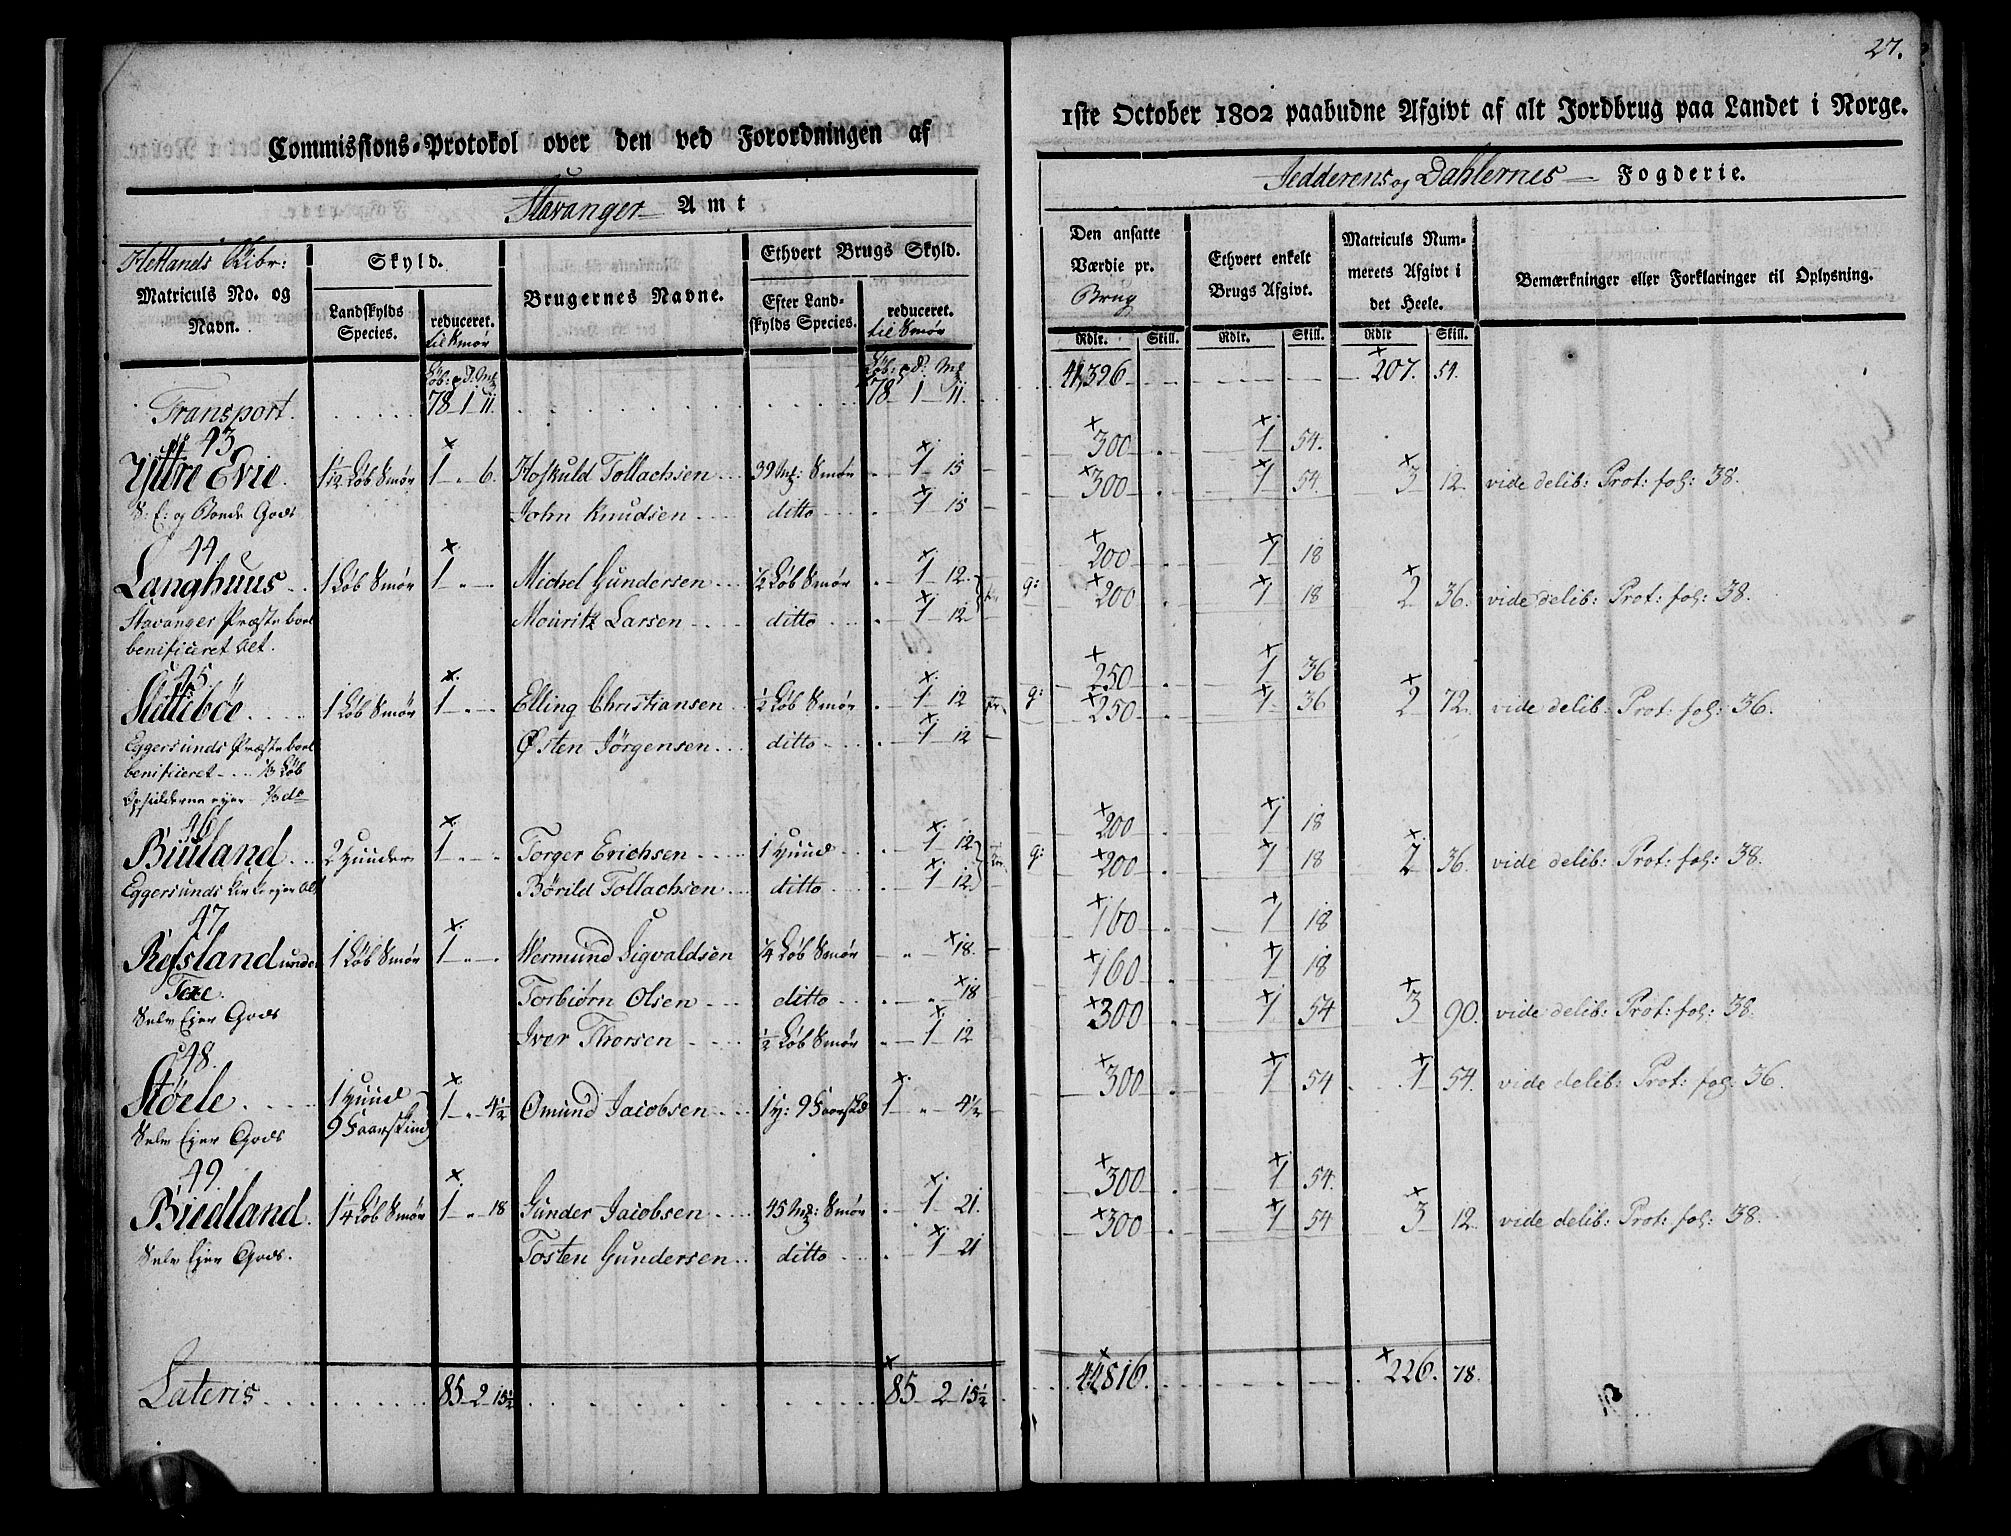 27.
Commissions-Protokol over den ved Forordningen af
1ste October 1802 paabudne Afgivt af alt Jordbrug paa Landet i Norge.
Stavanger Amt
Jedderens og Dahlernes Fogderie.
Hetlands Skibr:
Matriculs No. og Navn.
Skyld.
Landskylds Species.
reduceret. til Smør
Brugernes Navne.
Ethvert Brugs Skyld.
Efter Landskylds Species.
reduceret. til Smør
Den ansatte Værdie pr. Brug
Rdlr. Skill.
Ethvert enkelt Brugs Afgivt.
Rdlr. Skill.
Matriculs Nummerets Afgivt i det Heele.
Rdlr Skill.
Bemærkninger eller Forklaringer til Oplysning.
Transport. 78 1 11. 78 1 11. 41,396 207. 54.
43.
Yttre Evie. 1 1/12 Løb Smør 1 " 6. Hoskuld Tollachsen 39 Mk: Smør 1 15 300 1 54.
S. E: og Bonde Gods John Knudsen ditto 1 15 300 1 54. 3 12. vide delib: Prot: fol: 38.
44
Langhuus 1 Løb Smør 1 " Michel Gundersen 1/2 Løb Smør 1 12. 200 1 18
Stavanger Præstebord Mouritz Larsen ditto 1 12. 200 1 18 2 36. vide delib: Prot: fol: 38.
benificeret alt.
45
Slettebøe 1 Løb Smør 1 " Elling Christiansen 1/2 Løb Smør 1 12 250 1 36
Eggersunds Præstebord Østen Jørgensen ditto 1 12 250 1 36 2 72. vide delib: Prot: fol: 36.
benificeret 1/3 Løb
Opsidderne ejer 2/3 do
46
Biuland 2 Huuder 1 " Torger Erichsen 1 Huud 1 12 200 1 18
Eggersunds Kirke ejer alt Børild Tollachsen ditto 1 12 200 1 18 2 36. vide delib: Prot: fol: 38.
47
Refsland under 1 Løb Smør 1 " Wermund Sigvaldsen 1/4 Løb Smør " 18. 160 1 18
Torbiørn Olsen ditto " 18 160 1 18
Selv Ejer Gods Iver Thorsen 1/2 Løb Smør 1 12 300 1 54 3 90. vide delib: Prot: fol: 38.
48.
Støele 1 Huud 9 Faarskind 1 " 4 1/2 Omund Jacobsen 1 H: 9 Faarskd 1 " 4 1/2 300 1 54 1 54. vide delib: Prot: fol: 36.
Selv Ejer Gods
49.
Biedland. 1 1/4 Løb Smør 1 " 18 Gunder Jacobsen 45 Mk: Smør 1 21. 300 1 54.
Selv Ejer Gods. Tosten Gundersen ditto 1 21 300 1 54 3 12. vide delib: Prot: fol: 38.
Lateris 85 2 15 1/2 85 2 15 1/2 44,816. 226. 78.